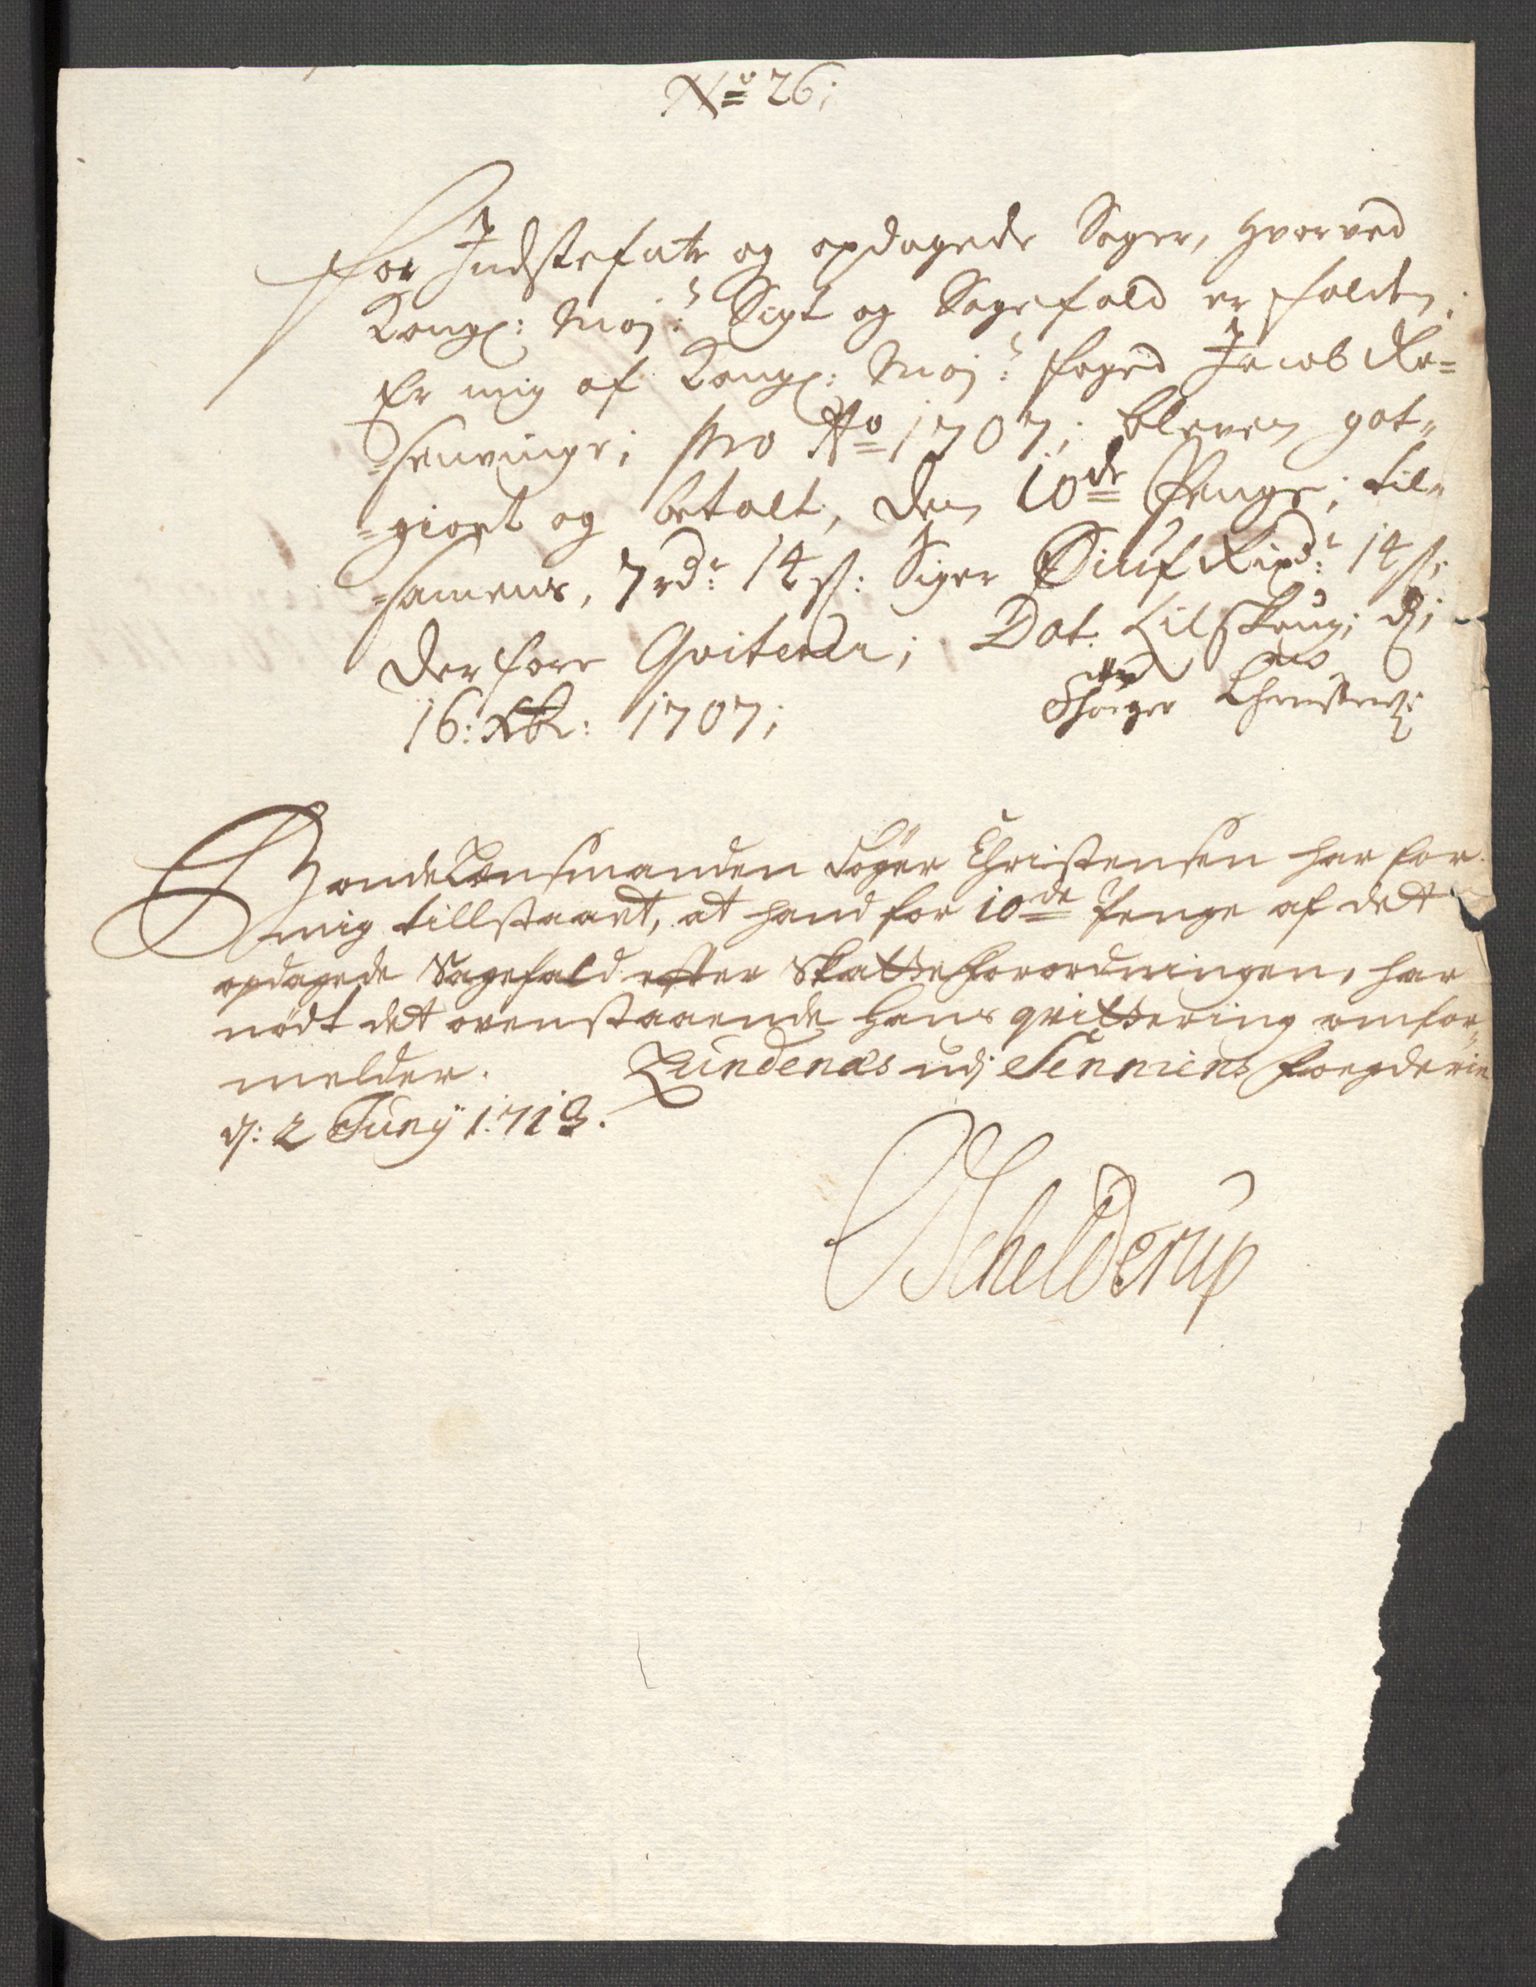 No 26;
For Indstefnte og opdagede Sager, hvorved
Kongl: Maj:s Sigt og Sagefald er falden,
Er mig af Kongl: Maj:s foged Jacob Ro=
=senvinge; pro Ao 1707; bleven got=
=giort og betalt, den 10de Penge; til=
=samens, 7 rdr: 14 s: Siger Siuf Rixdr: 14 s;
derfore Qviterer; Dat. d;
16: Xbr: 1707; Christens:
BondeLensmanden Føger Christensen har for
mig tillstaaet, at hand for 10de Penge af det
opdagede Sagefald efter Skatteforordningen, har
nødt det ovenstaaende hans qvittering omfor=
melder. Lundenæs udj Senniens Fogderie
d: 2 Junij 1713.
Schelderup